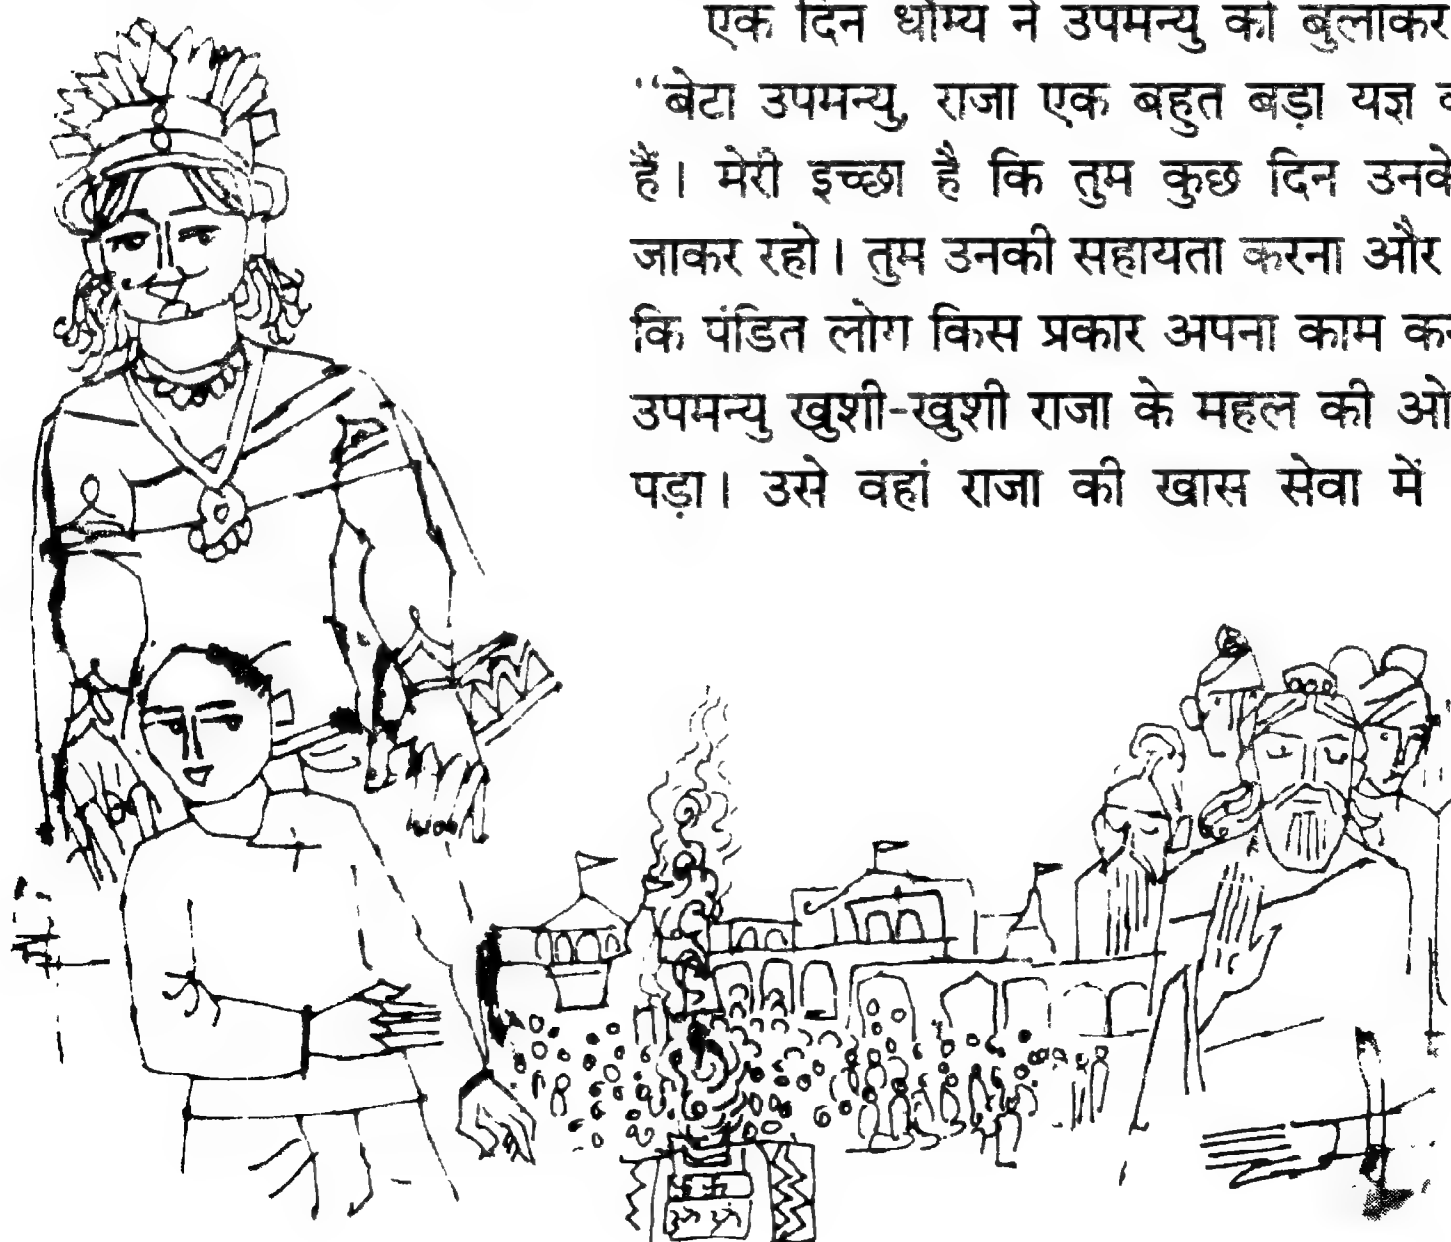 एक दिन धौम्य ने उपमन्यु को बुलाकर
"बेटा उपमन्यु, राजा एक बहुत बड़ा यज्ञ
हैं। मेरी इच्छा है कि तुम कुछ दिन उनके
जाकर रहो। तुम उनकी सहायता करना और
कि पंडित लोग किस प्रकार अपना काम
उपमन्यु खुशी-खुशी राजा के महल की
पड़ा। उसे वहां राजा की खास सेवा में